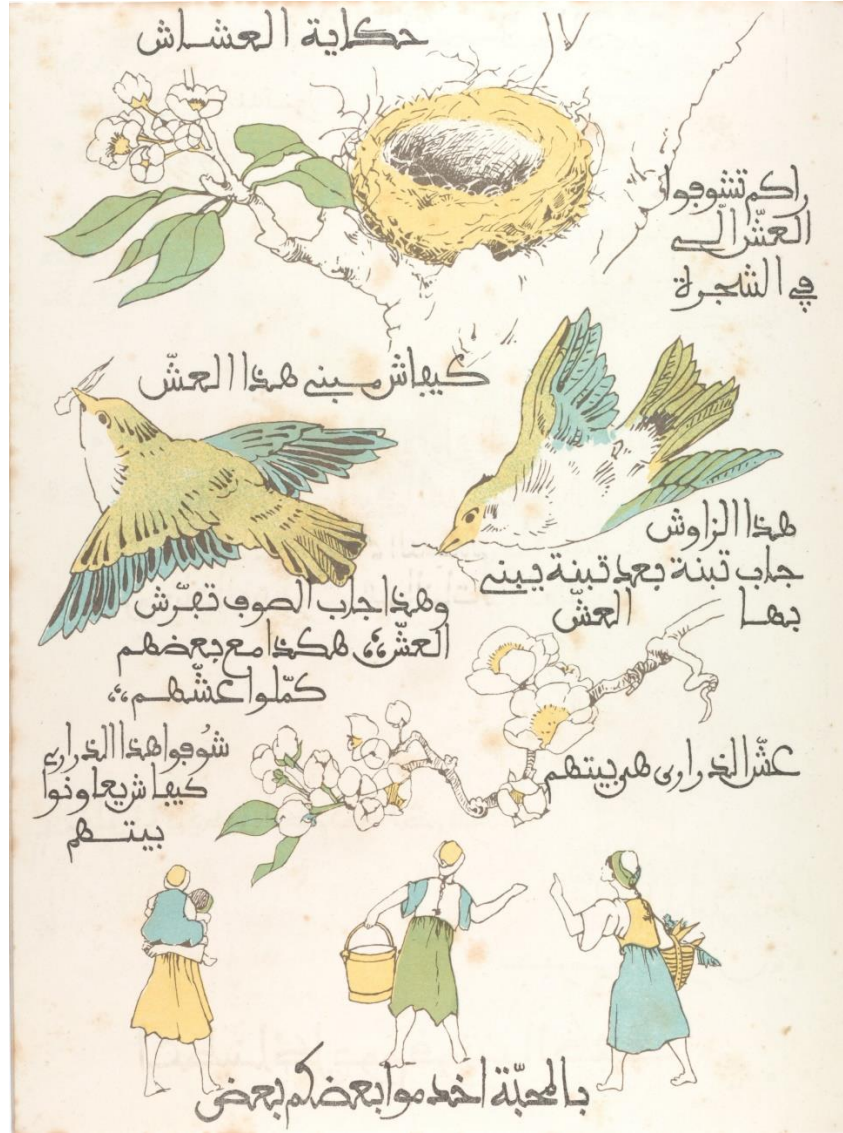 حكاية العشاش
راكم تشوفوا
العشّ الّي
في الشجرة
كيفاش مبني هذا العشّ
هذا الزاوش
جاب تبنة بعد تبنة يبني
بها العشّ
وهذا جاب الصوف تفرّش
العشّ،، هكذا مع بعضهم
كمّلوا عشّهم،،
عشّ الذراري هو بيتهم
شُوفوا هذا الذراري
كيفاش يعاونوا
بيتهم
بالمحبّة اخدموا بعضكم بعض